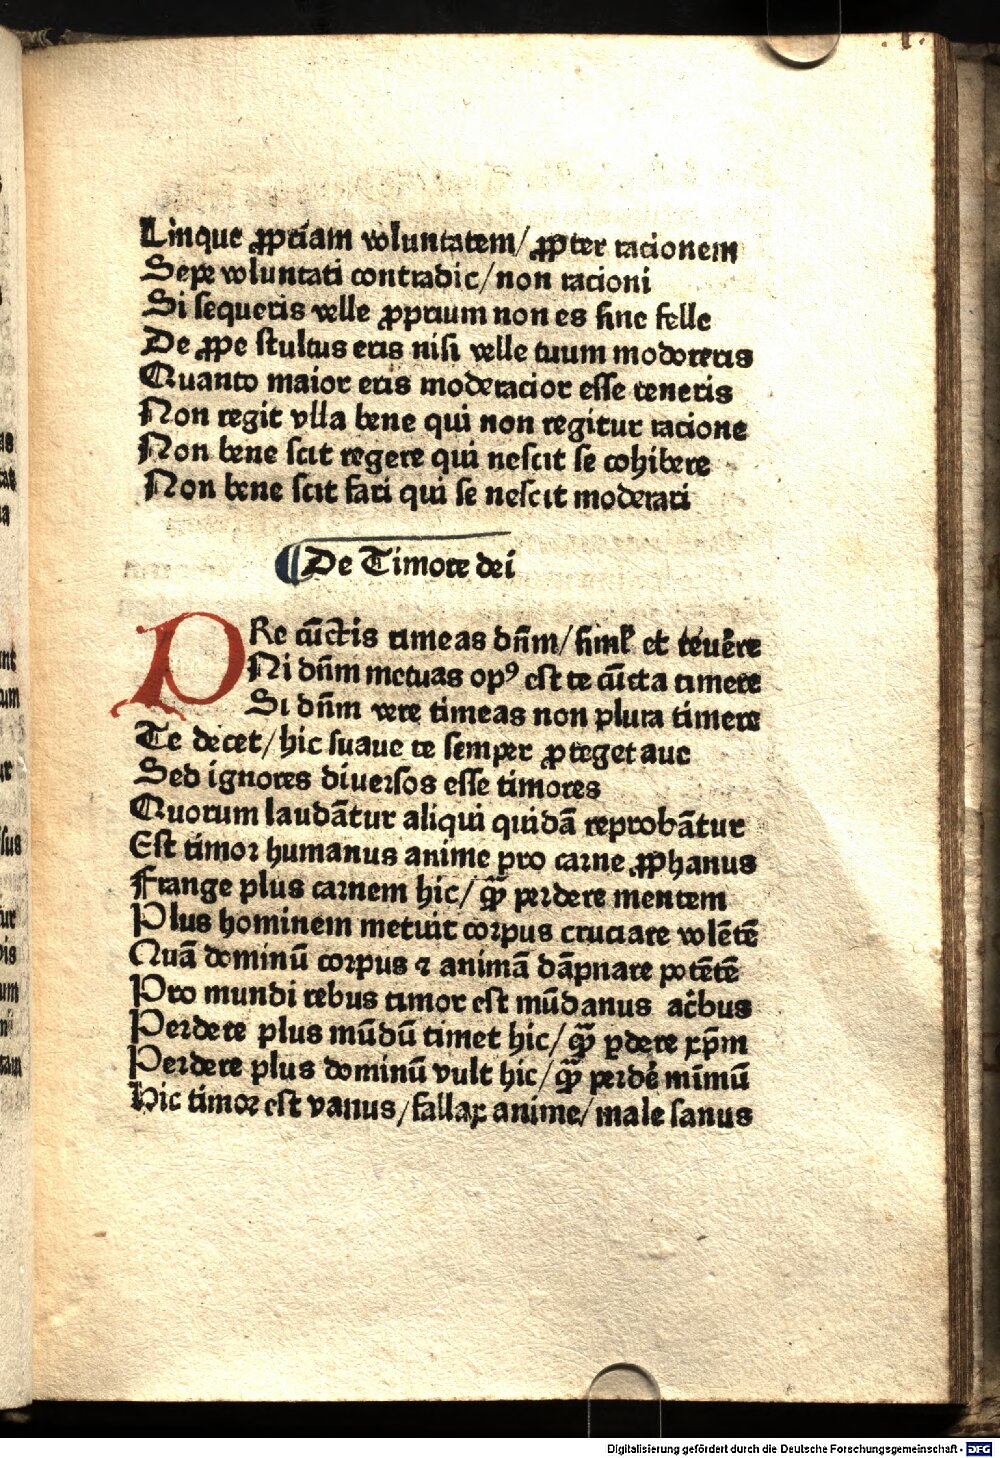 Linque ꝓpriam voluntatem/ ꝓpter racionem
Sepe voluntati contradic/ non racioni
Si sequeris velle ꝓprium non es sine felle
De ꝓpe stultus eris nisi velle tuum modereris
Quanto maior eris moderacior esse teneris
Non regit vlla bene qui non regitur racione
Non bene scit regere qui nescit se cohibere
Non bene scit fari qui se nescit moderari
De Timore dei
PRe cūctis timeas dn̄m/ et reuēre
Ni dn̄m metuas opꝰ est te cūcta timere
Si dn̄m vere timeas non plura timere
Te decet/ hic suaue te semper ꝓteget aue
Sed ignores diuersos esse timores
Quorum laudātur aliqui quidā reprobātur
Est timor humanus anime pro carne ꝓphanus
Frange plus carnem hic/ qꝫ̄ perdere mentem
Plus hominem metuit corpus cruciare volētē
Quā dominū corpus ⁊ animā dāpnare potētē
Pro mundi rebus timor est mūdanus acerbus
Perdere plus mūdū timet hic/ qꝫ̄ ꝑdere xp̄m
Perdere plus dominū vult hic/ qꝫ̄ perdē mīmū
Hic timor est vanus/ fallax anime/ male sanus
Digitalisierung gefördert durch die Deutsche Forschungsgemeinschaft - DFG